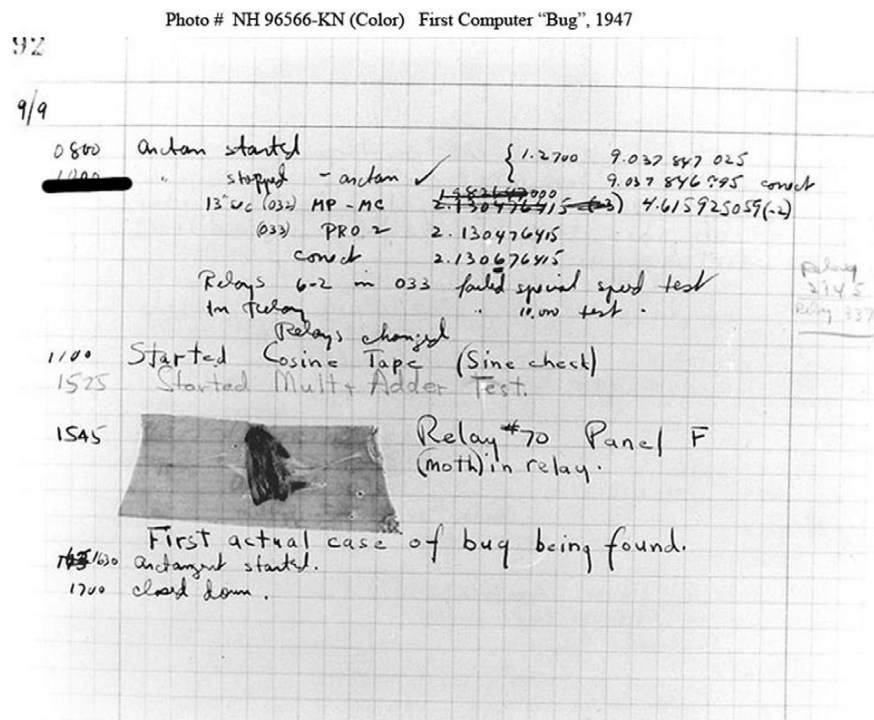 Photo # NH 96566-KN (Color) First Computer “Bug”, 1947
92
9/9
0800 arctan started { 1.2700 9.037 847 025
" stopped - arctan ✓ 9.037 846 995 correct
13"sec (032) MP - MC 2.130476415 (-3) 4.615925059(-2)
(033) PRO 2 2.130476415
correct 2.130676415
Relays 6-2 in 033 failed special speed test
In Relay " 10,000 test .
Relays changed
Relay
Relay 337
1100 Started Cosine Tape (Sine check)
1525 Started Mult + Adder Test.
1545 Relay #70 Panel F
(moth) in relay.
First actual case of bug being found.
1630 arctangent started.
1700 closed down .